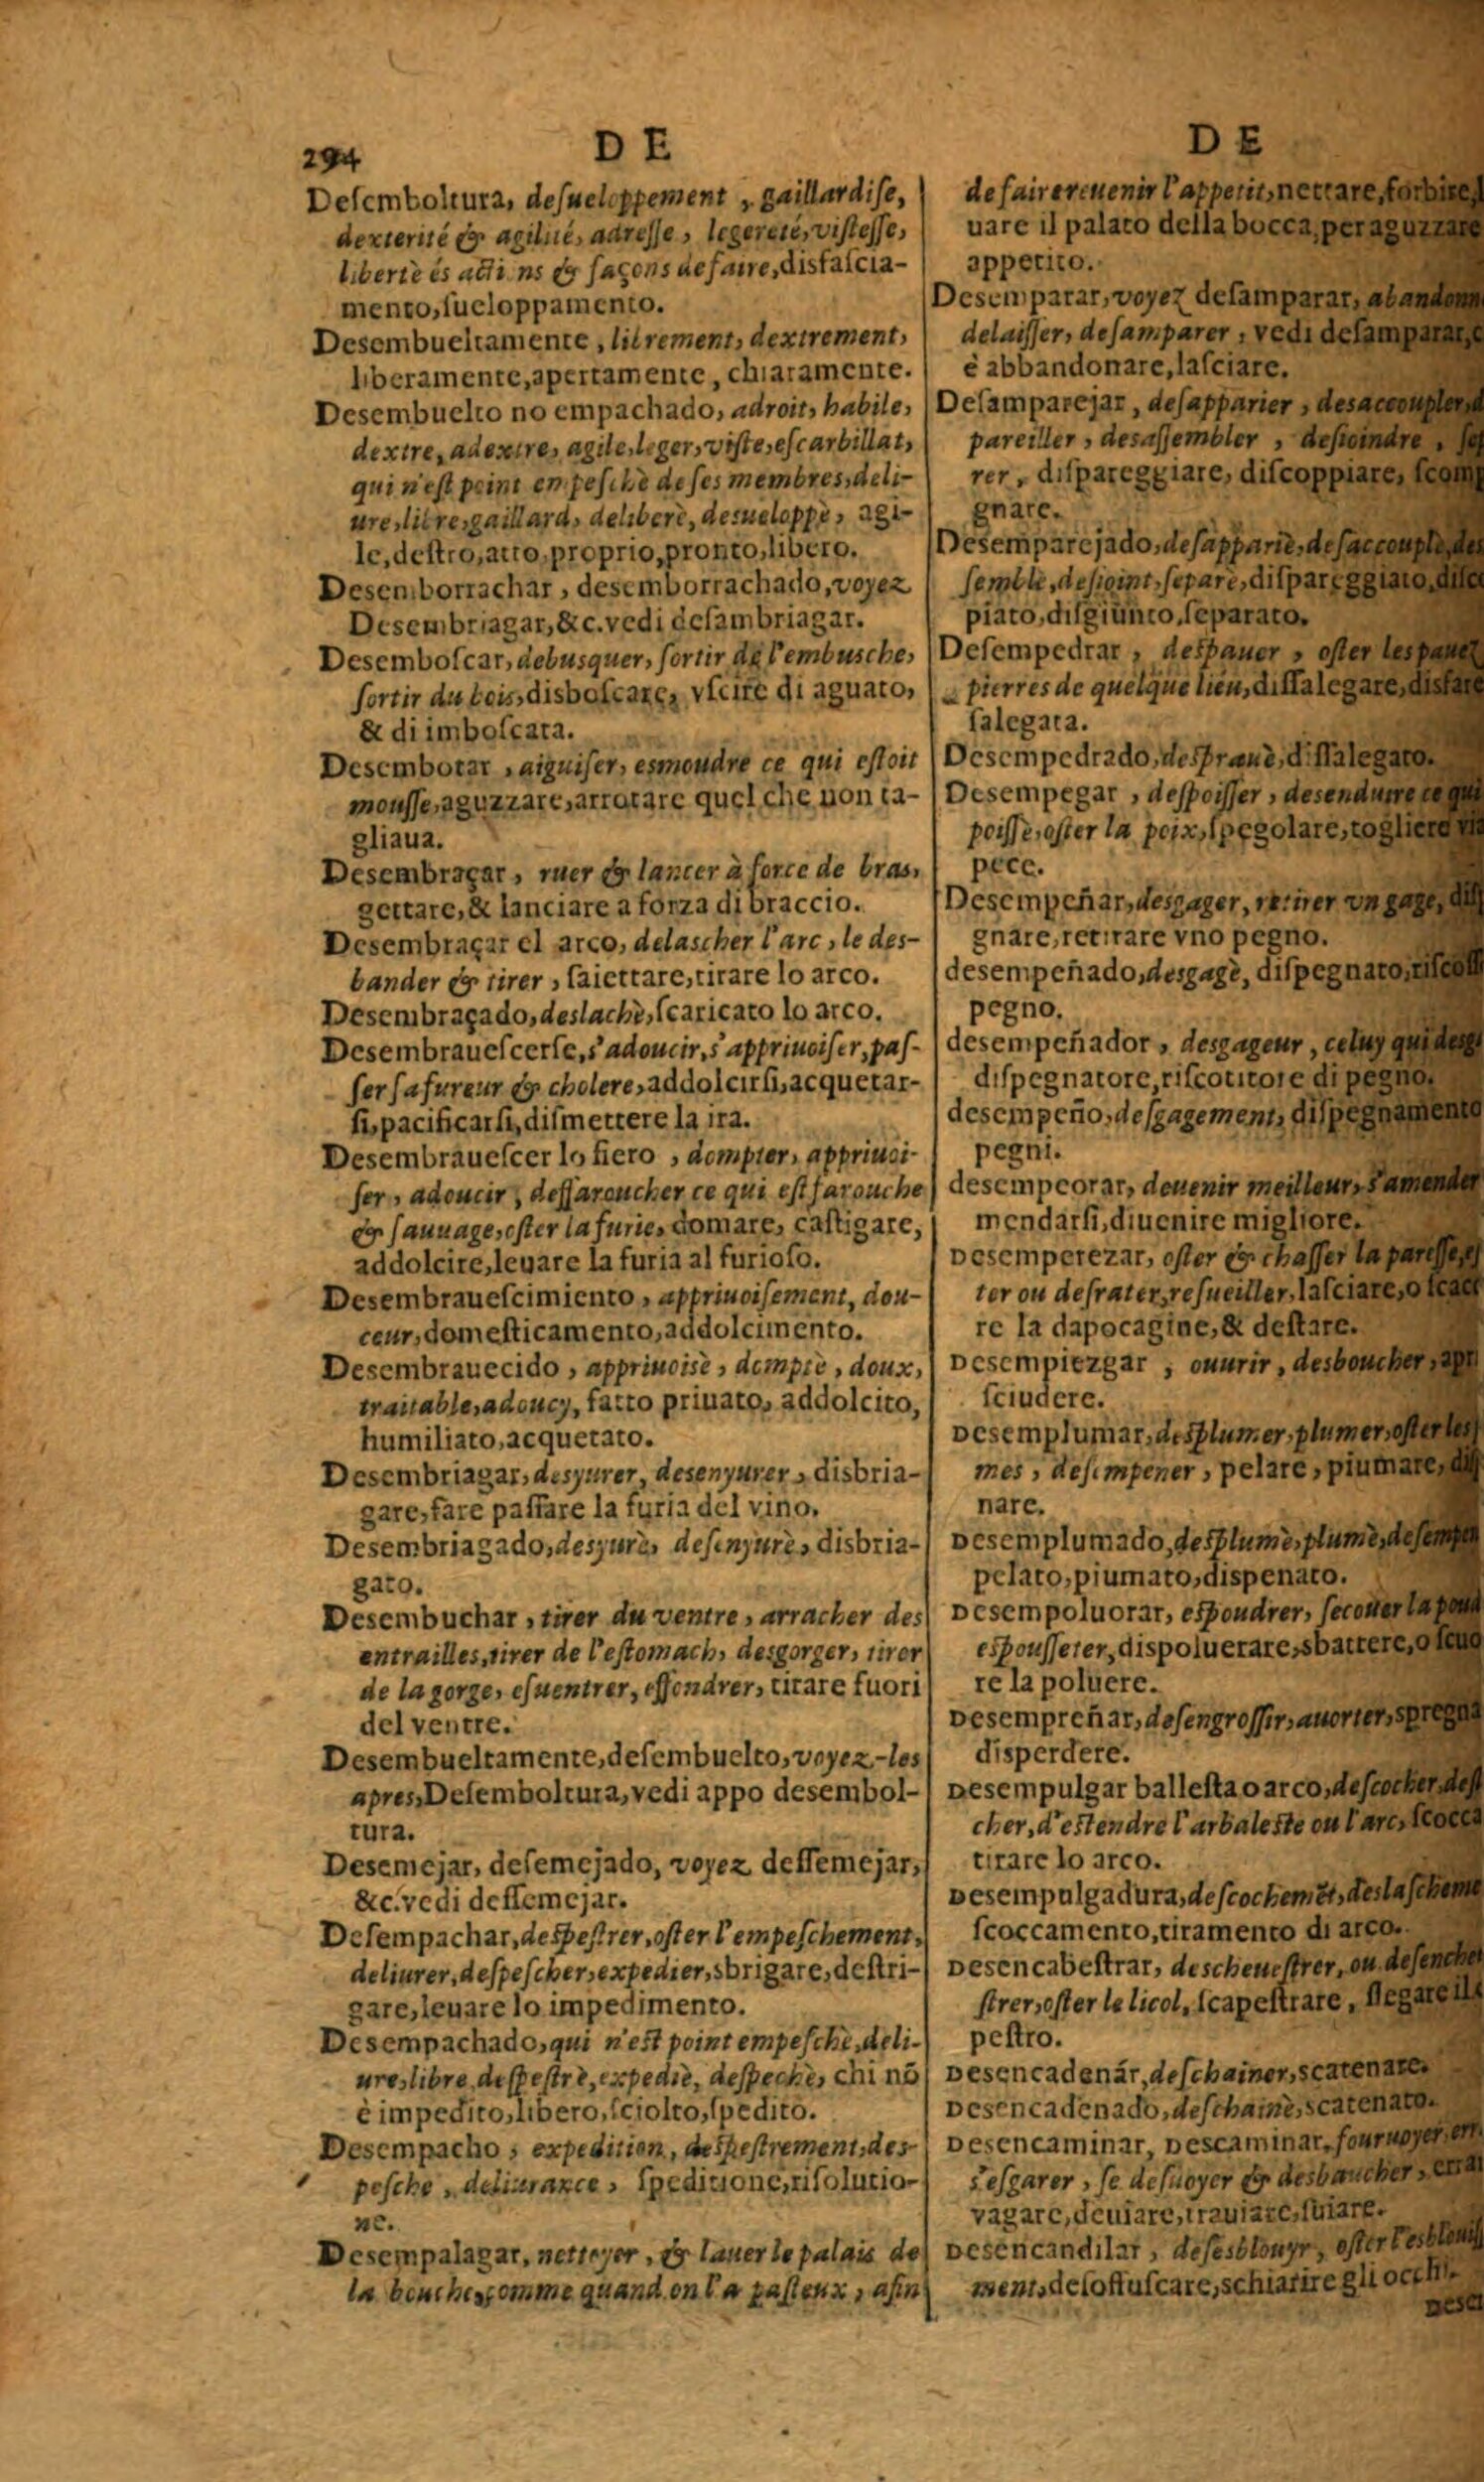 294
DE
Deſemboltura, deſueloppement, gaillardiſe,
dexterité & agilité, adreſſe, legereté, viſteſſe,
liberté és acti ns & façons de faire, disfaſcia-
mento, ſueloppamento.
Desembueltamente, librement, dextrement,
liberamente, apertamente, chiaramente.
Desembuelto no empachado, adroit, habile,
dextre, adextre, agile, leger, viſte, eſcarbillat,
qui n'eſt point empeſchè de ſes membres, deli-
ure, libre, gaillard, deliberè, desueloppè, agi-
le, deſtro, atto proprio, pronto, libero.
Desemborrachar, desemborrachado, voyez
Desembriagar, &c. vedi deſambriagar.
Desemboſcar, debusquer, ſortir de l'embusche,
ſortir du bois, disboſcare, vſcire di aguato,
& di imboſcata.
Desembotar, aiguiſer, esmoudre ce qui eſtoit
mouſſe, aguzzare, arrotare quel che non ta-
gliaua.
Desembraçar, ruer & lancer à force de bras,
gettare, & lanciare a forza di braccio.
Desembraçar el arco, delascher l'arc, le des-
bander & tirer, ſaiettare, tirare lo arco.
Desembraçado, deslachè, ſcaricato lo arco.
Desembraueſcerſe, s'adoucir, s'appriuoiſer, paſ-
ſer ſa fureur & cholere, addolcirſi, acquetar-
ſi, pacificarſi, diſmettere la ira.
Desembraueſcer lo fiero, dompter, appriuoi-
ſer, adoucir, deffaroucher ce qui eſt farouche
& ſauuage, oſter la furie, domare, caſtigare,
addolcire, leuare la furia al furioſo.
Desembraueſcimiento, appriuoiſement, dou-
ceur, domeſticamento, addolcimento.
Desembrauecido, appriuoisè, domptè, doux,
traitable, adoucy, fatto priuato, addolcito,
humiliato, acquetato.
Desembriagar, desyurer, desenyurer, disbria-
gare, fare paſſare la furia del vino.
Desembriagado, desyurè, deſenyurè, disbria-
gato.
Desembuchar, tirer du ventre, arracher des
entrailles, tirer de l'eſtomach, desgorger, tirer
de la gorge, eſuentrer, effondrer, titare fuori
del ventre.
Desembueltamente, deſembuelto, voyez-les
apres, Deſemboltura, vedi appo desembol-
tura.
Desemejar, deſemejado, voyez deſſemejar,
&c. vedi deſſemejar.
Deſempachar, deſpeſtrer, oſter l'empeſchement,
deliurer, deſpeſcher, expedier, sbrigare, deſtri-
gare, leuare lo impedimento.
Desempachado, qui n'eſt point empeſchè, deli-
ure, libre, deſpeſtrè, expediè, deſpechè, chi nõ
è impedito, libero, ſciolto, ſpedito.
Desempacho, expedition, deſpeſtrement, des-
peſche, deliurance, ſpeditione, riſolutio-
ne.
Desempalagar, nettoyer, & lauer le palais de
la bouche, comme quand on l'a paſteux, afin
DE
de faire reuenir l'appetit, nettare, forbire, l
uare il palato della bocca, per aguzzare
appetito.
Desemparar, voyez deſamparar, abandonn
delaiſſer, deſamparer, vedi deſamparar, c
è abbandonare, laſciare.
Deſamparejar, deſapparier, desaccoupler, d
pareiller, desaſſembler, deſioindre, ſep
rer, diſpareggiare, diſcoppiare, ſcomp
gnare.
Desemparejado, deſapparié, deſaccouplè, des
ſemblè, deſioint, ſeparè, diſpareggiato, diſco
piato, diſgiunto, ſeparato.
Deſempedrar, deſpauer, oſter les pauez
pierres de quelque lieu, diſſalegare, disfare
ſalegata.
Desempedrado, deſprauè, diſſalegato.
Desempegar, deſpoiſſer, desenduire ce qui
poiſſè, oſter la poix, ſpegolare, togliere via
pece.
Desempeñar, desgager, retirer vn gage, diſp
gnare, retirare vno pegno.
desempeñado, desgagè, diſpegnato, riſcoſſ
pegno.
desempeñador, desgageur, celuy qui desg
diſpegnatore, riſcotitore di pegno.
desempeño, deſgagement, diſpegnamento
pegni.
desempeorar, deuenir meilleur, s'amender
mendarſi, diuenire migliore.
Desemperezar, oſter & chaſſer la pareſſe, eſ
ter ou deſrater, reſueiller, laſciare, o ſcacc
re la dapocagine, & deſtare.
Desempiezgar, ouurir, desboucher, apr
ſciudere.
Desemplumar, deſplumer, plumer, oſter les p
mes, deſempener, pelare, piumare, diſ
nare.
Desemplumado, deſplumè, plumè, deſempen
pelato, piumato, dispenato.
Desempoluorar, eſpoudrer, ſecoüer la poud
eſpouſſeter, dispoluerare, sbattere, o ſcuo
re la poluere.
Desempreñar, deſengroſſir, auorter, spregna
disperdere.
Desempulgar balleſta o arco, deſcocher, deſl
cher, d'eſtendre l'arbaleſte ou l'arc, ſcocca
tirare lo arco.
Desempulgadura, deſcochemẽt, deslaſcheme
ſcoccamento, tiramento di arco.
Desencabeſtrar, descheueſtrer, ou deſenche
ſtrer, oſter le licol, ſcapeſtrare, ſlegare il c
peſtro.
Desencadenár, deſchainer, scatenare.
Desencadenado, deſchainè, scatenato.
Desencaminar, Descaminar, fouruoyer, err
s'eſgarer, ſe deſuoyer & desbaucher, errar
vagare, deuiare, trauiare, ſuiare.
Desencandilar, deſesblouyr, oſter l'esblouiſſ
ment, deſoffuſcare, schiarire gli occhi.
Desen